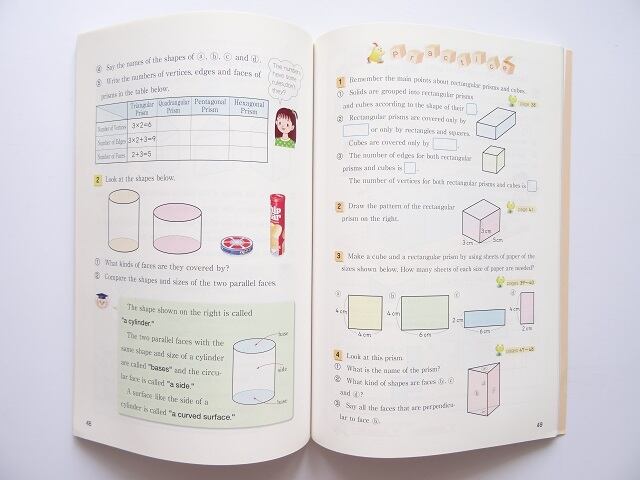 ⓐ Say the names of the shapes of ⓐ, ⓑ, ⓒ and ⓓ.
ⓑ Write the numbers of vertices, edges and faces of
prisms in the table below.
The numbers
have some
rules, don't
they?
Triangular Prism Quadrangular Prism Pentagonal Prism Hexagonal Prism
Number of Vertices 3×2=6
Number of Edges 3×2+3=9
Number of Faces 2+3=5
2 Look at the shapes below.
① What kinds of faces are they covered by?
② Compare the shapes and sizes of the two parallel faces.
The shape shown on the right is called
"a cylinder."
The two parallel faces with the
same shape and size of a cylinder
are called "bases" and the circu-
lar face is called "a side."
A surface like the side of a
cylinder is called "a curved surface."
base
side
base
48
Practice
1 Remember the main points about rectangular prisms and cubes.
① Solids are grouped into rectangular prisms
and cubes according to the shape of their
page 38
② Rectangular prisms are covered only by
or only by rectangles and squares.
Cubes are covered only by
③ The number of edges for both rectangular
prisms and cubes is
The number of vertices for both rectangular prisms and cubes is
2 Draw the pattern of the rectangular
prism on the right.
page 41
3cm
3cm 5cm
3 Make a cube and a rectangular prism by using sheets of paper of the
sizes shown below. How many sheets of each size of paper are needed?
pages 39~40
ⓐ ⓑ ⓒ ⓓ
4cm 4cm 2cm 4cm
4cm 6cm 6cm 2cm
4 Look at this prism.
pages 47~48
① What is the name of the prism?
② What kind of shapes are faces ⓑ, ⓒ
and ⓓ?
③ Say all the faces that are perpendicu-
lar to face ⓑ.
49